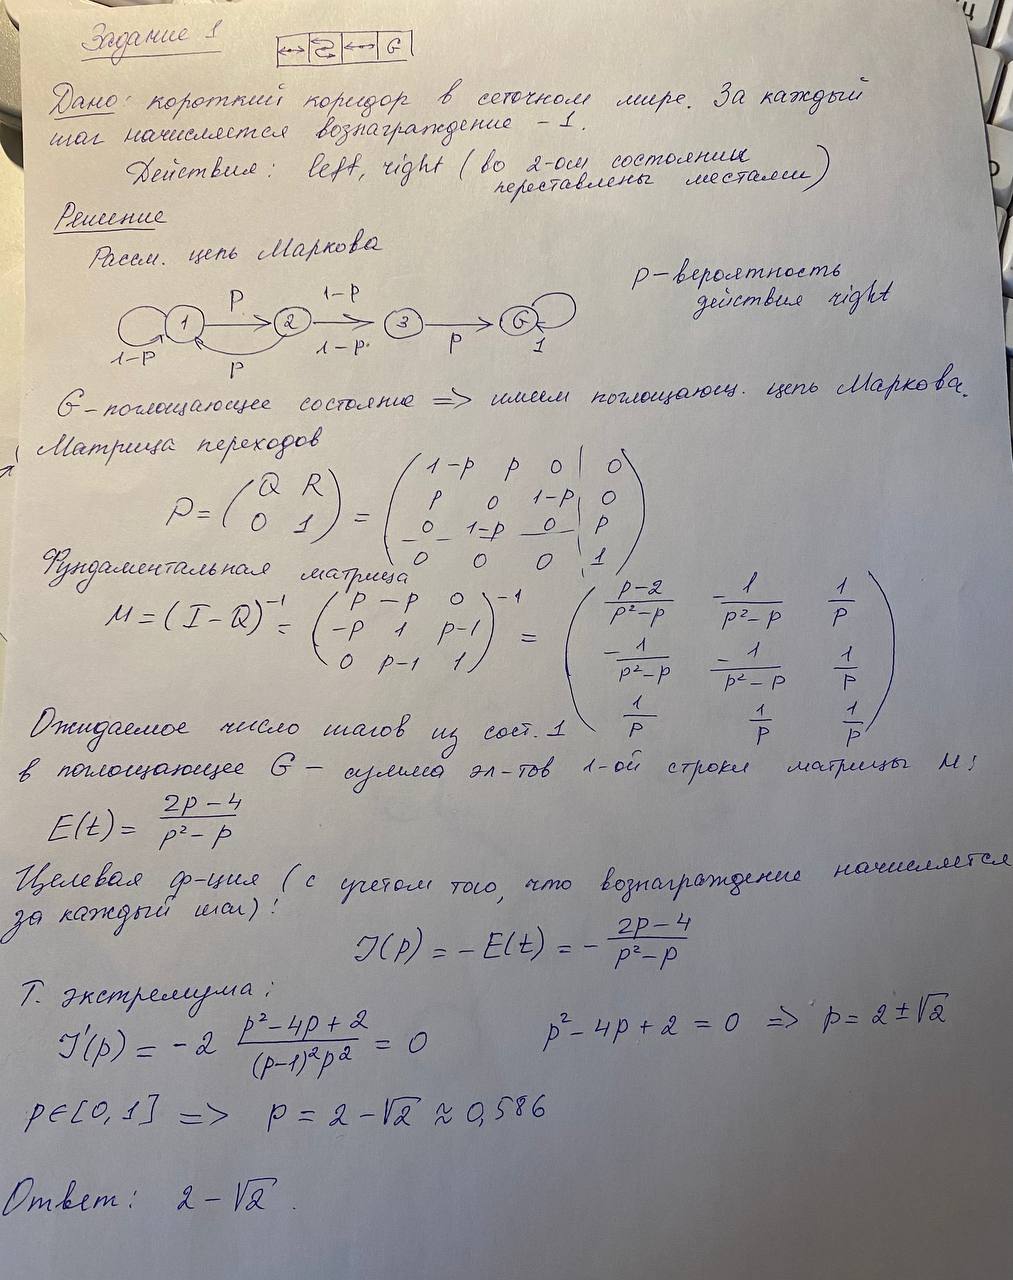 Задание 1
G
Дано: короткий коридор в сеточном мире. За каждый
шаг начисляется вознаграждение -1.
Действия: left, right (во 2-ом состоянии
переставлены местами)
Решение
Рассм. цепь Маркова
p-вероятность
действия right
1-p 1 p 2 1-p 3 p G 1
p 1-p
G-поглощающее состояние => имеем поглощающ. цепь Маркова.
Матрица переходов
P = (Q R; 0 1) = (1-p p 0 | 0; p 0 1-p | 0; 0 1-p 0 | p; 0 0 0 | 1)
Фундаментальная матрица
M = (I-Q)^-1 = (p -p 0; -p 1 p-1; 0 p-1 1)^-1 = ((p-2)/(p²-p) -1/(p²-p) 1/p; -1/(p²-p) -1/(p²-p) 1/p; 1/p 1/p 1/p)
Ожидаемое число шагов из сост. 1
в поглощающее G - сумма эл-тов 1-ой строки матрицы M:
E(t) = (2p-4)/(p²-p)
Целевая ф-ция (с учетом того, что вознаграждение начисляется
за каждый шаг):
J(p) = -E(t) = -(2p-4)/(p²-p)
Т. экстремума:
J'(p) = -2 (p²-4p+2)/((p-1)²p²) = 0 p²-4p+2=0 => p=2±√2
p∈[0,1] => p = 2-√2 ≈ 0,586
Ответ: 2-√2.